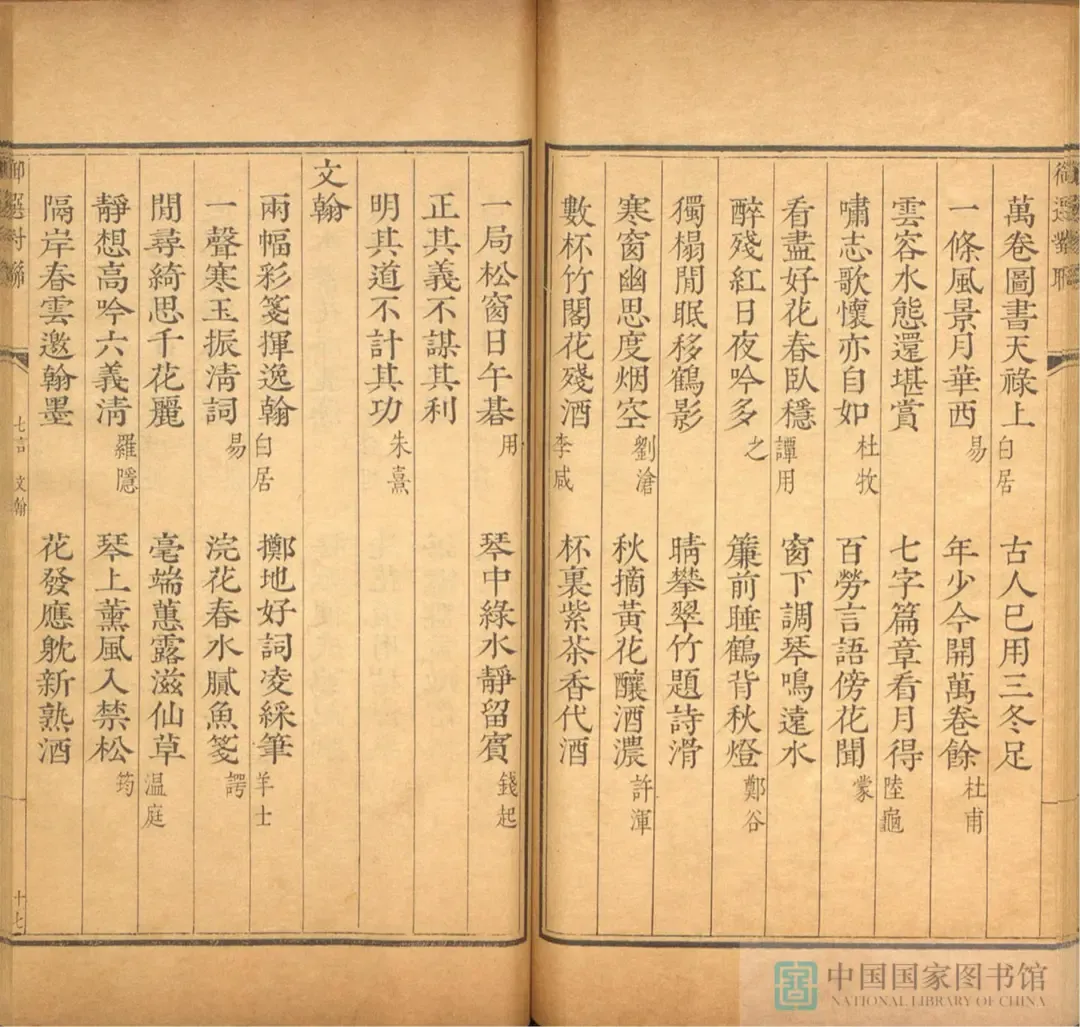 萬卷圖書天祿上 白居 古人巳用三冬足
一條風景月華西 易 年少今開萬卷餘 杜甫
雲容水態還堪賞 七字篇章看月得 陸龜
嘯志歌懷亦自如 杜牧 百勞言語傍花聞 蒙
看盡好花春臥穩 譚用 窗下調琴鳴遠水
醉殘紅日夜吟多 之 簾前睡鶴背秋燈 鄭谷
獨榻閒眠移鶴影 晴攀翠竹題詩滑
寒窗幽思度烟空 劉滄 秋摘黃花釀酒濃 許渾
數杯竹閣花殘酒 李咸 杯裏紫茶香代酒
一局松窗日午棊 用 琴中綠水靜留賓 錢起
正其義不謀其利
明其道不計其功 朱熹
文翰
兩幅彩箋揮逸翰 白居 擲地好詞凌綵筆 羊士
一聲寒玉振淸詞 易 浣花春水膩魚箋 諤
閒尋綺思千花麗 毫端蕙露滋仙草 温庭
靜想高吟六義淸 羅隱 琴上薰風入禁松 筠
隔岸春雲邀翰墨 花發應躭新熟酒
御選對聯 七言 文翰 十七
中国国家图书馆
NATIONAL LIBRARY OF CHINA